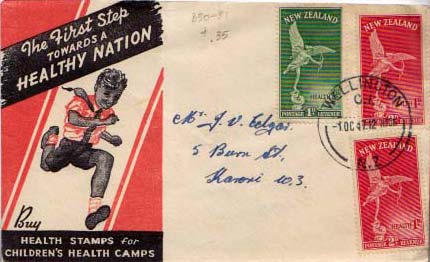 The First Step
TOWARDS A
HEALTHY NATION
Buy
HEALTH STAMPS for
CHILDREN'S HEALTH CAMPS
.35
NEW ZEALAND
HEALTH
POSTAGE 1D REVENUE
NEW ZEALAND
NEW ZEALAND
HEALTH 1D
POSTAGE 2D REVENUE
WELLINGTON
1 OC 47
N.Z.
Mr J. V. Edgar
5 Burn St,
Karori W.3.